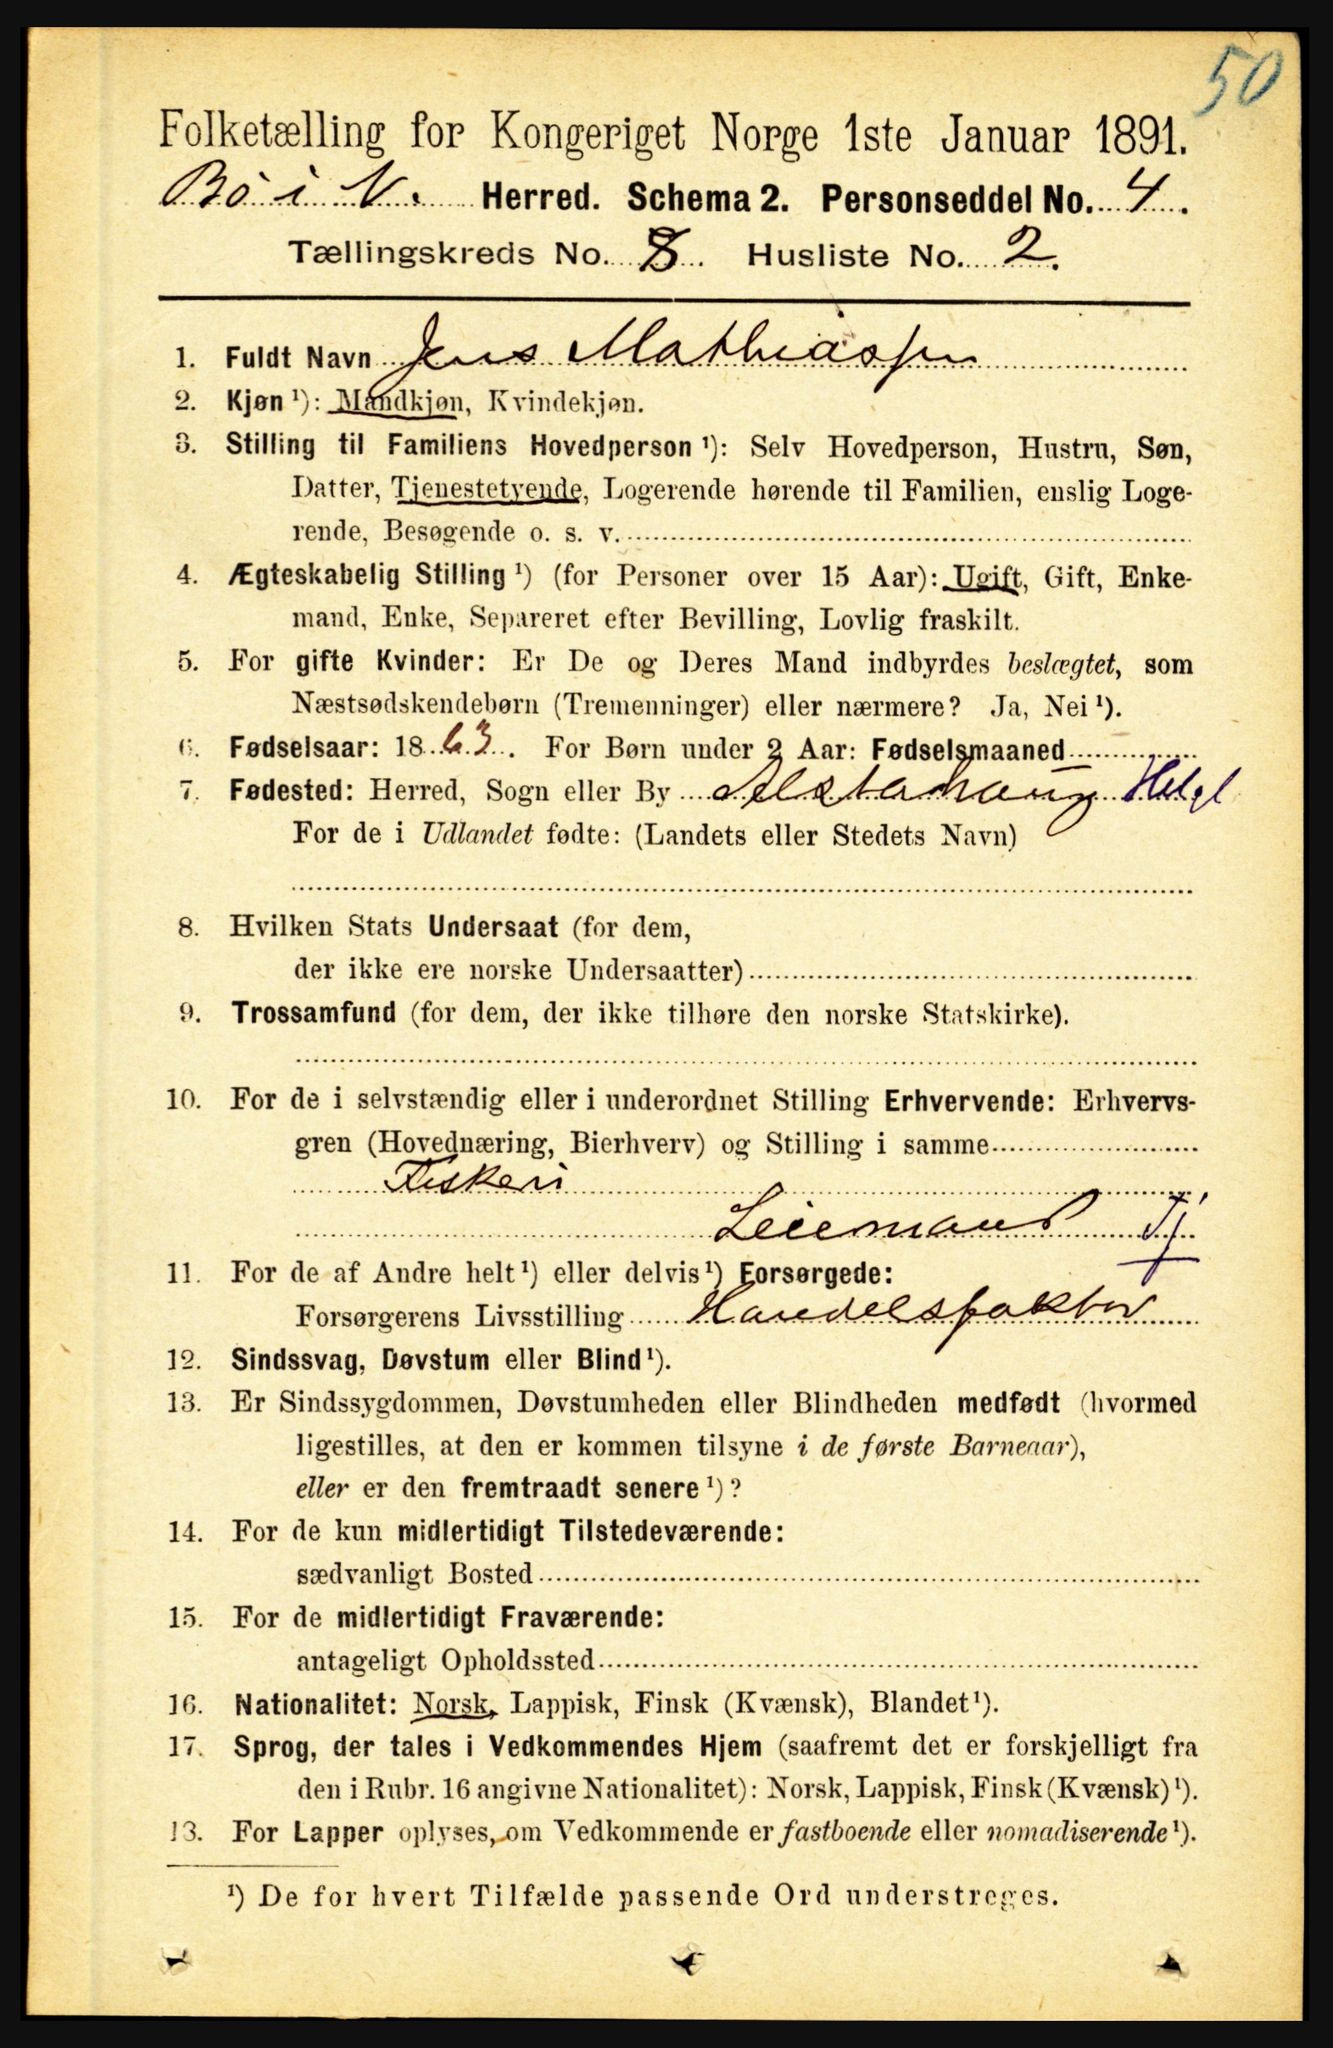 50
Folketælling for Kongeriget Norge 1ste Januar 1891.
Bö i V. Herred. Schema 2. Personseddel No. 4.
Tællingskreds No. 8. Husliste No. 2.
1. Fuldt Navn Jens Mathiassen
2. Kjøn ¹): Mandkjøn, Kvindekjøn.
3. Stilling til Familiens Hovedperson ¹): Selv Hovedperson, Hustru, Søn,
Datter, Tjenestetyende, Logerende hørende til Familien, enslig Loge-
rende, Besøgende o. s. v.
4. Ægteskabelig Stilling ¹) (for Personer over 15 Aar): Ugift, Gift, Enke-
mand, Enke, Separeret efter Bevilling, Lovlig fraskilt.
5. For gifte Kvinder: Er De og Deres Mand indbyrdes beslægtet, som
Næstsødskendebørn (Tremenninger) eller nærmere? Ja, Nei ¹).
6. Fødselsaar: 1863. For Børn under 2 Aar: Fødselsmaaned
7. Fødested: Herred, Sogn eller By Alstahaug Helgl
For de i Udlandet fødte: (Landets eller Stedets Navn)
8. Hvilken Stats Undersaat (for dem,
der ikke ere norske Undersaatter)
9. Trossamfund (for dem, der ikke tilhøre den norske Statskirke).
10. For de i selvstændig eller i underordnet Stilling Erhvervende: Erhvervs-
gren (Hovednæring, Bierhverv) og Stilling i samme
Fiskeri
Leiemand Tj
11. For de af Andre helt ¹) eller delvis ¹) Forsørgede:
Forsørgerens Livsstilling Handelsfaktor
12. Sindssvag, Døvstum eller Blind ¹).
13. Er Sindssygdommen, Døvstumheden eller Blindheden medfødt (hvormed
ligestilles, at den er kommen tilsyne i de første Barneaar),
eller er den fremtraadt senere ¹)?
14. For de kun midlertidigt Tilstedeværende:
sædvanligt Bosted
15. For de midlertidigt Fraværende:
antageligt Opholdssted
16. Nationalitet: Norsk, Lappisk, Finsk (Kvænsk), Blandet ¹).
17. Sprog, der tales i Vedkommendes Hjem (saafremt det er forskjelligt fra
den i Rubr. 16 angivne Nationalitet): Norsk, Lappisk, Finsk (Kvænsk) ¹).
13. For Lapper oplyses, om Vedkommende er fastboende eller nomadiserende ¹).
¹) De for hvert Tilfælde passende Ord understreges.